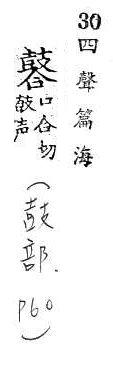 30四聲篇海
口合切
鼓声
(鼓部.
P60)